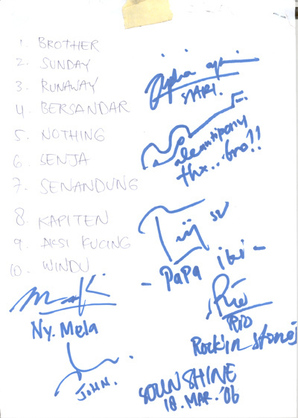 1. BROTHER
2. SUNDAY
3. RUNAWAY
4. BERSANDAR
5. NOTHING
6. SENJA
7. SENANDUNG
8. KAPITEN
9. AKSI KUCING
10. WINDU
thx... bro!!
- PAPA ibi -
Ny. Mela
RIO
Rock'in Stones
JOHN.
SOUNSHINE
18. MAR. '06